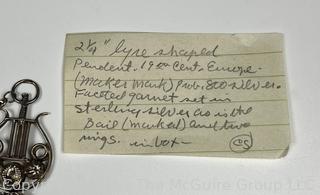 2 1/4" lyre shaped
Pendent. 19th Cent. Europe.
(maker mark) Prob. 800 silver.
Faceted garnet set in
sterling silver as is the
Bail (marked) and two
rings. in box -